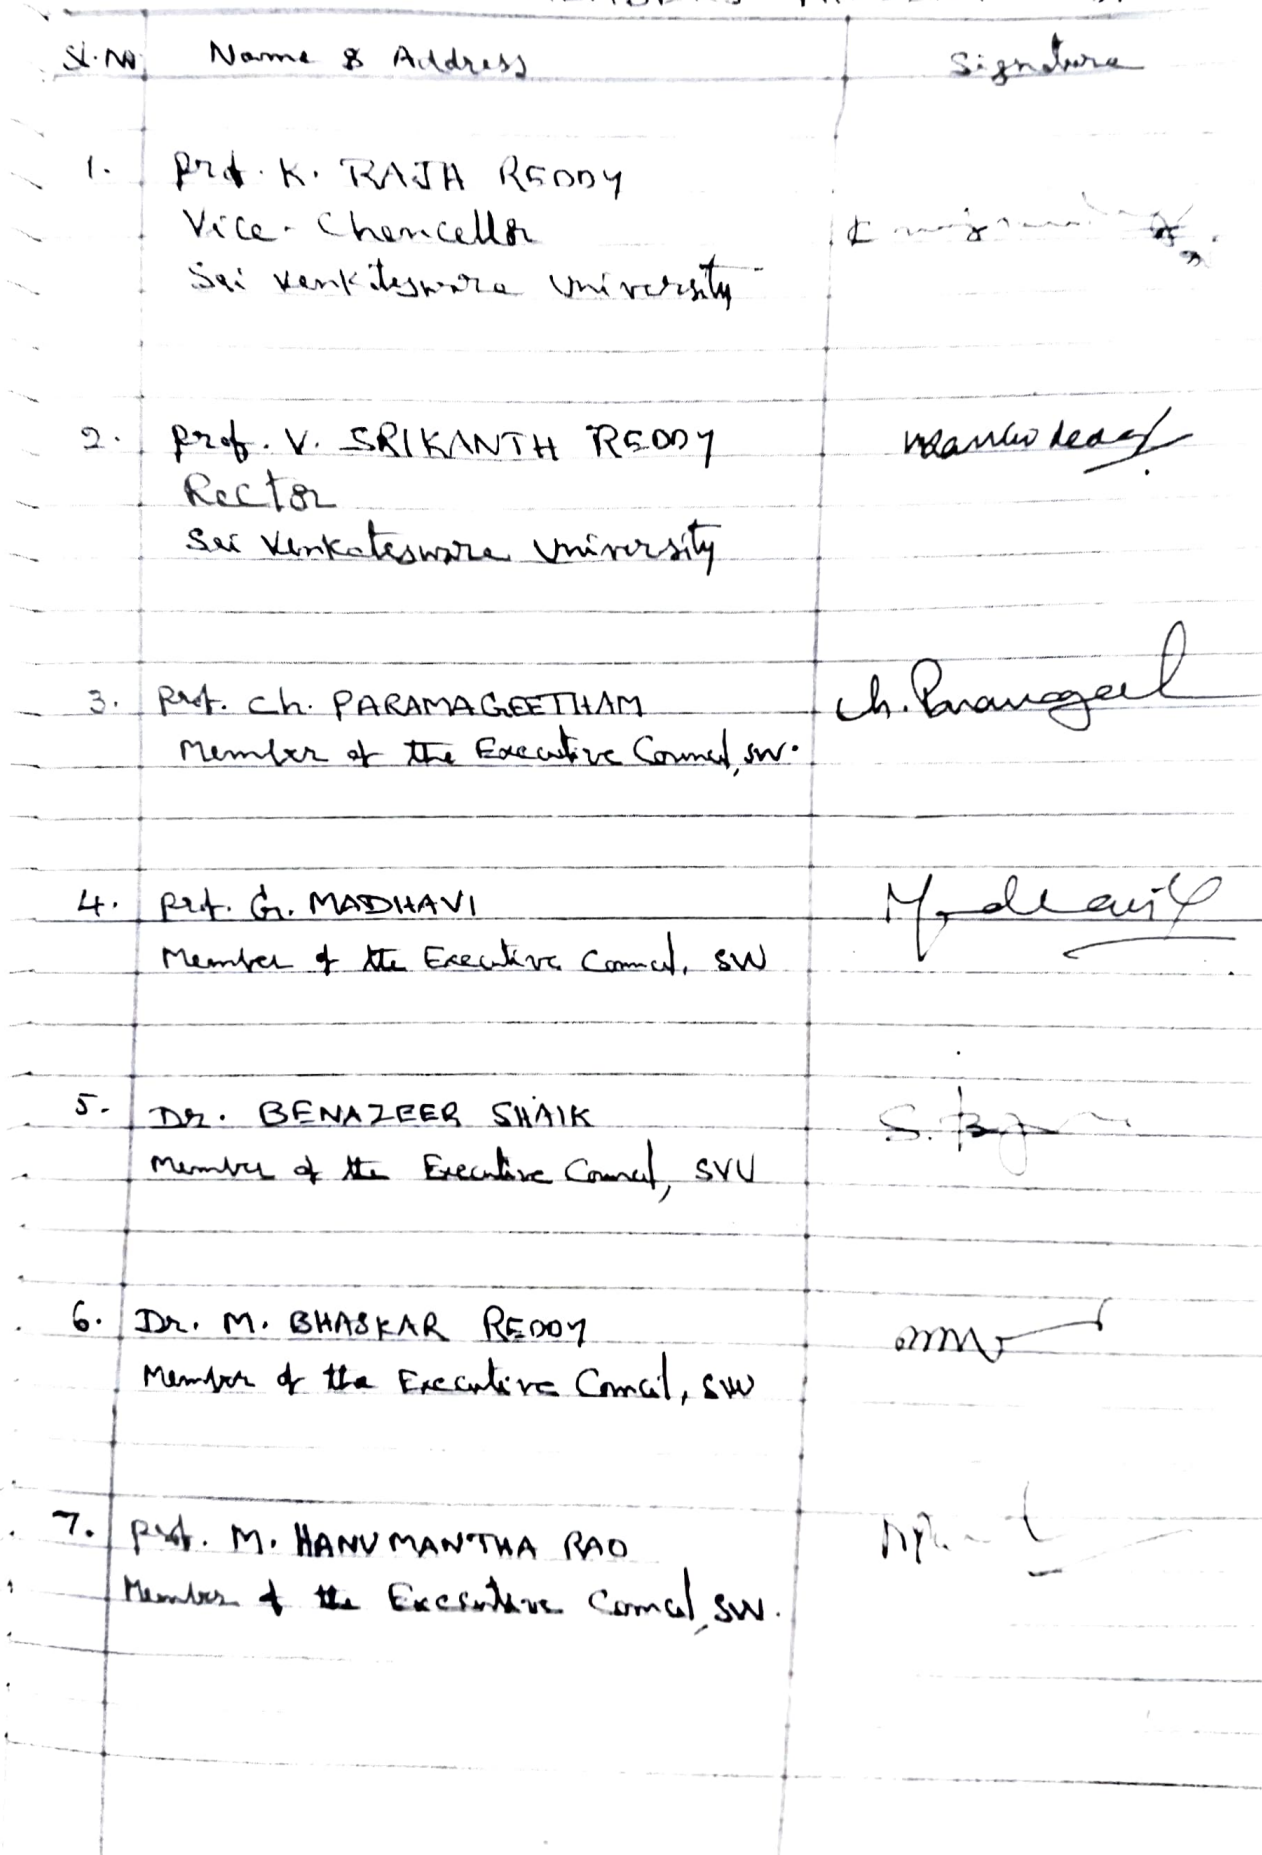 Sl. No. Name & Address Signature
1. Prof. K. RAJA REDDY
Vice-Chancellor
Sri Venkateswara University
2. Prof. V. SRIKANTH REDDY
Rector
Sri Venkateswara University
3. Prof. Ch. PARAMAGEETHAM Ch. Paramageet
Member of the Executive Council, SVU.
4. Prof. G. MADHAVI Madhavi G
Member of the Executive Council, SVU
5. Dr. BENAZEER SHAIK S.
Member of the Executive Council, SVU
6. Dr. M. BHASKAR REDDY
Member of the Executive Council, SVU
7. Prof. M. HANUMANTHA RAO
Member of the Executive Council, SVU.